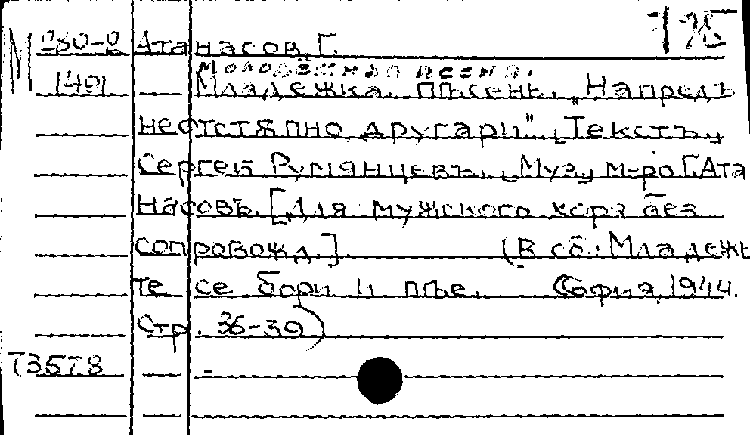 125
М 980-0 Атанасов Г.
Молодёжная песня.
1401 Младежка пѣсень. „Напредъ
неотстѫпно другари" Текстъ
Сергей Румянцевъ. Муз. м-ро Г. Ата
насовъ. [Для мужского хора без
сопровожд.] (В сб.: Младежь
те се бори и пѣе. София, 1944.
Стр. 36-39)
Т3578